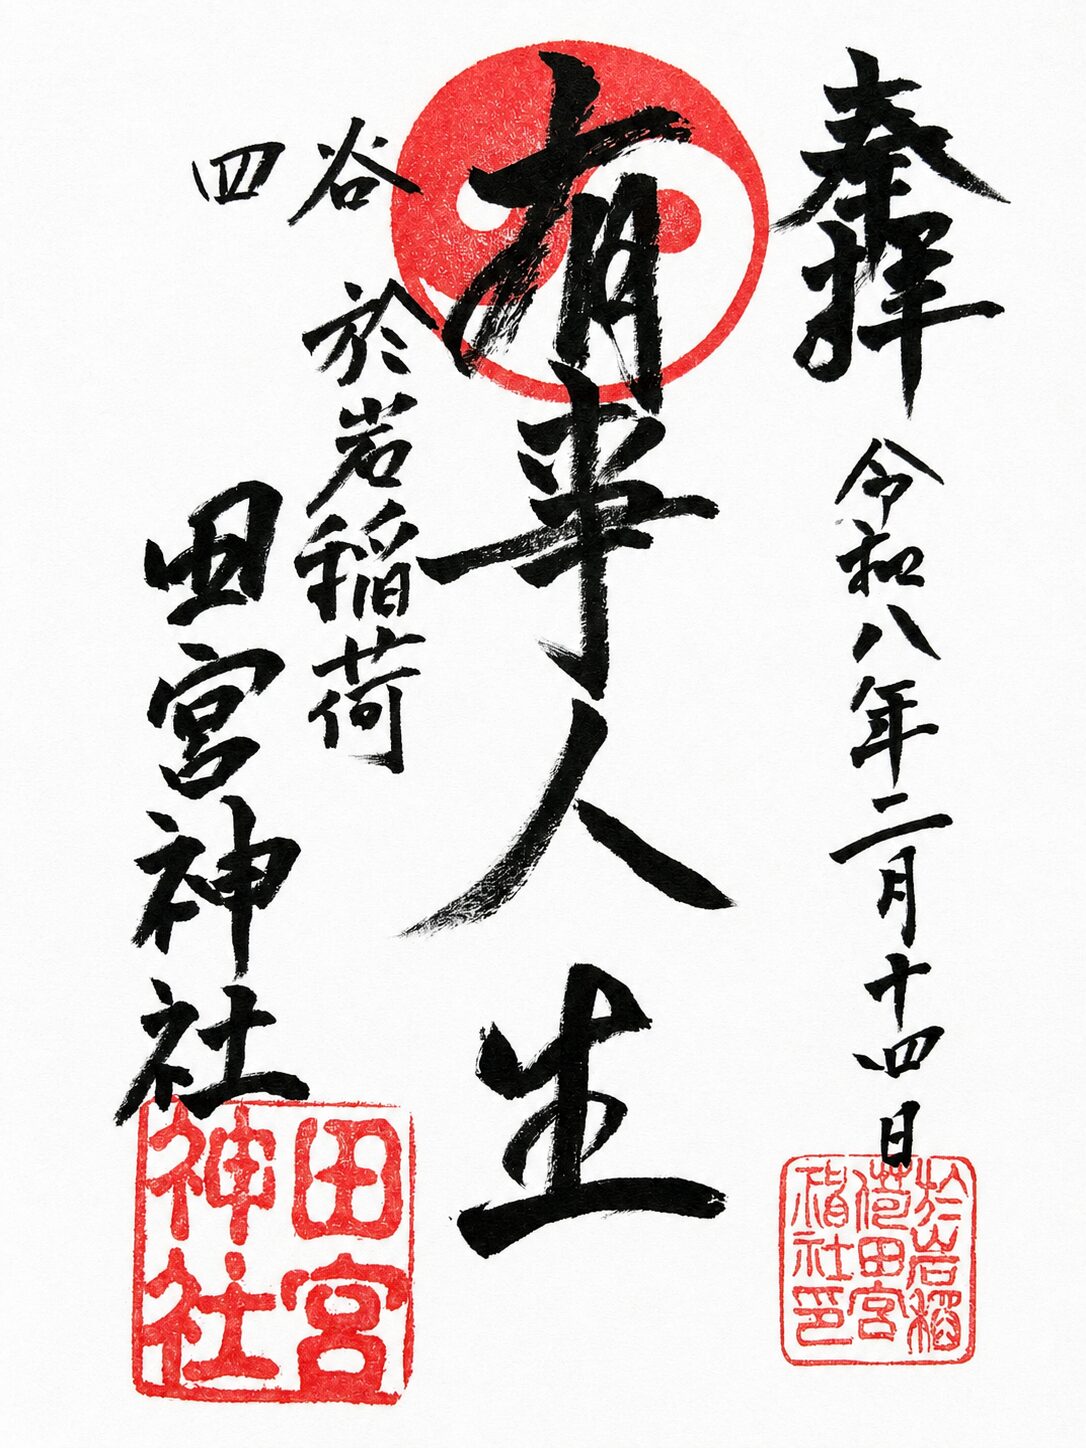 奉拝
令和八年二月十四日
有事人生
四谷
於岩稲荷
田宮神社
田宮
神社
於岩稲
荷田宮
社印